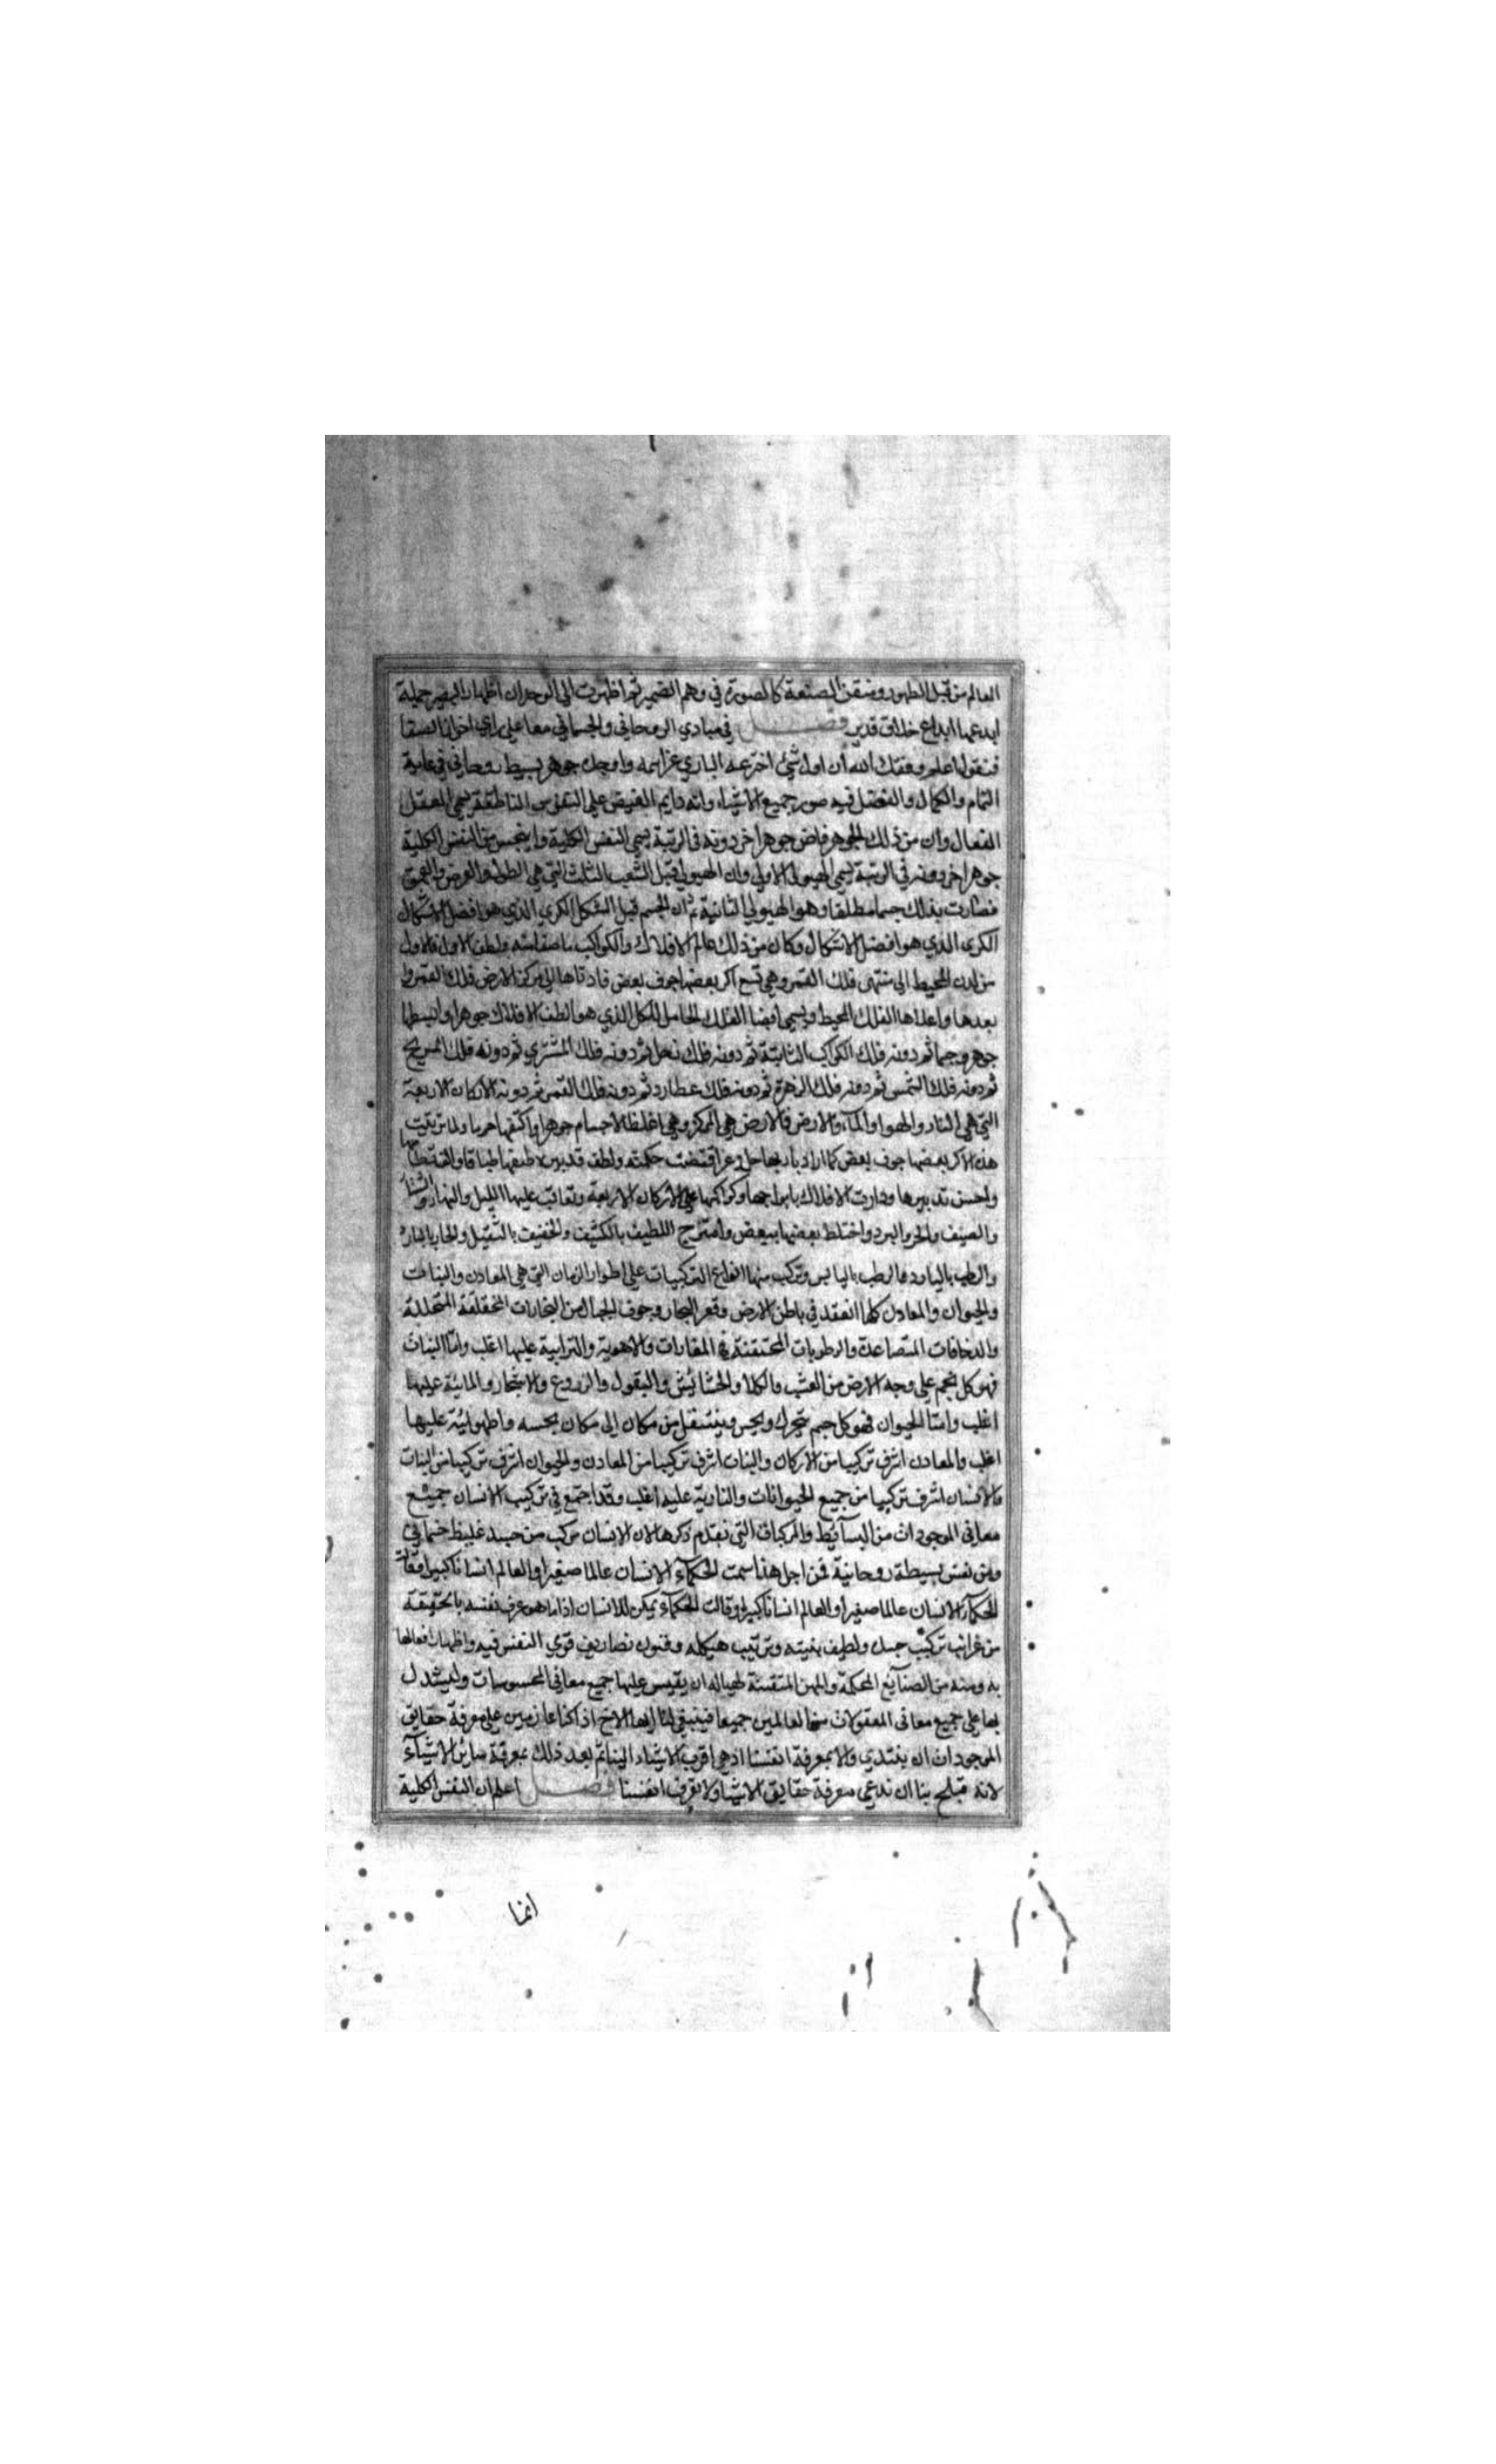 العالم من قبل الظهور ومتقن الصنعة كالصورة في وهم الضمير ثم اظهرت الى الوجدان اظهار البصير جملة
ابدعها ابداع خلاق قدير فصل في مبادي الروحاني والجسماني معا على راي اخواننا
فنقول اعلم وفقك الله أن اول شيئ اخترعه الباري عز اسمه واوجده جوهر بسيط روحاني في غاية
التمام والكمال والفضل فيه صور جميع الاشياء وانه دايم الفيض على النفوس الناطقة يسمى العقل
الفعال وان من ذلك الجوهر فاض جوهرا خر دونه في الرتبة يسمى النفس الكلية وانبجس من النفس الكلية
جوهرا خر دونه في الرتبة يسمى الهيولى الاولى وان الهيولي قبل الشعب الثلث التي هي الطول والعرض والعمق
فصارت بذلك جسما مطلقا وهو الهيولي الثانية ثم ان الجسم قبل الشكل الكري الذي هو افضل الاشكال
الكرى الذي هو افضل الاشكال وكان من ذلك عالم الافلاك والكواكب ما صفا منه ولطف الاول فالاول
من لدن المحيط الى منتهى فلك القمر وهي تسع اكر بعضها جوف بعض فادناها الى مركز الارض فلك القمر و
بعدها واعلاها الفلك المحيط ويسمى ايضا الفلك الحامل للكل الذي هو الطف الافلاك جوهرا وابسطها
جوهر وجما ثم دونه فلك الكواكب الثابتة ثم دونه فلك زحل ثم دونه فلك المشتري ثم دونه فلك المريخ
ثم دونه فلك الشمس ثم دونه فلك الزهرة ثم دونه فلك عطارد ثم دونه فلك القمر ثم دونه الاركان الاربعة
التي هي النار والهوا والمآء والارض فالارض هي المركز وهي اغلظ الاجسام جوهرا واكثفها جرما ولما ترتبت
هذه الاكر بعضها جوف بعض كما اراد باريها جل وعز اقتضت حكمته ولطف قدبيره
واحسن تدبيرها ودارت الافلاك بابراجها وكواكبها على الاركان الاربعة وتعاقب عليها الليل والنهار والشتا
والصيف والحر والبرد واختلط بعضها ببعض وامتزج اللطيف بالكثيف والخفيف بالثقيل والحار بالبارد
والرطب باليابس وتركب منها انواع التركيبات على اطوار الزمان التي هي المعادن والنبات
والحيوان والمعادن كلما انعقد في باطن الارض وقعر البحار وجوف الجبال من البخارات المتحللة
والدخانات المتصاعدة والرطوبات المحتقنة في المغارات والاهوية والترابية عليها اغلب واما النبات
فهو كل نجم على وجه الارض من العشب والكلا والحشائش والبقول والزروع والاشجار والمائية عليها
اغلب وامتا الحيوان فهو كل جسم يتحرك ويحس وينتقل من مكان الى مكان بجسمه والهوائية عليها
اغلب والمعادن اشرف تركيبا من الاركان والنبات اشرف تركيبا من المعادن والحيوان اشرف تركيبا من النبات
والانسان اشرف تركيبا من جميع الحيوانات والنارية عليه اغلب وقد اجتمع في تركيب الانسان جميع
معانى الموجودات من البسآئط والمركبات التي تقدم ذكرها لان الانسان مركب من جسد غليظ جسماني
ومن نفس بسيطة روحانية فمن اجل هذا سمت الحكمآء الانسان عالما صغيرا والعالم انسانا كبيرا وقالت
الحكمآء الانسان عالما صغيرا والعالم انسانا كبيرا وقالت الحكمآء يمكن للانسان اذا ما هو عرف نفسه بالحقيقة
من غرائب تركيب جسده ولطيف بنيته وترتيب هيكله وفنون تصاريف قوى النفس فيه واظهار افعالها
به ومنه من الصنآئع المحكمة والمهن المتقنة ان يقيس عليها جميع معانى المحسوسات وليستدل
بها على جميع معانى المعقولات من العالمين جميعا فينبغي لنا ايها الاخ اذ اكنا عازمين على معرفة حقايق
الموجودات ان يبتدي والا بمعرفة انفسنا اذ هي اقرب الاشياء الينا ثم بعد ذلك بمعرفة ساير الاشيآء
لانه قبيح بنا ان ندعي معرفة حقايق الاشياء ولا نعرف انفسنا فصل اعلم ان النفس الكلية
انما